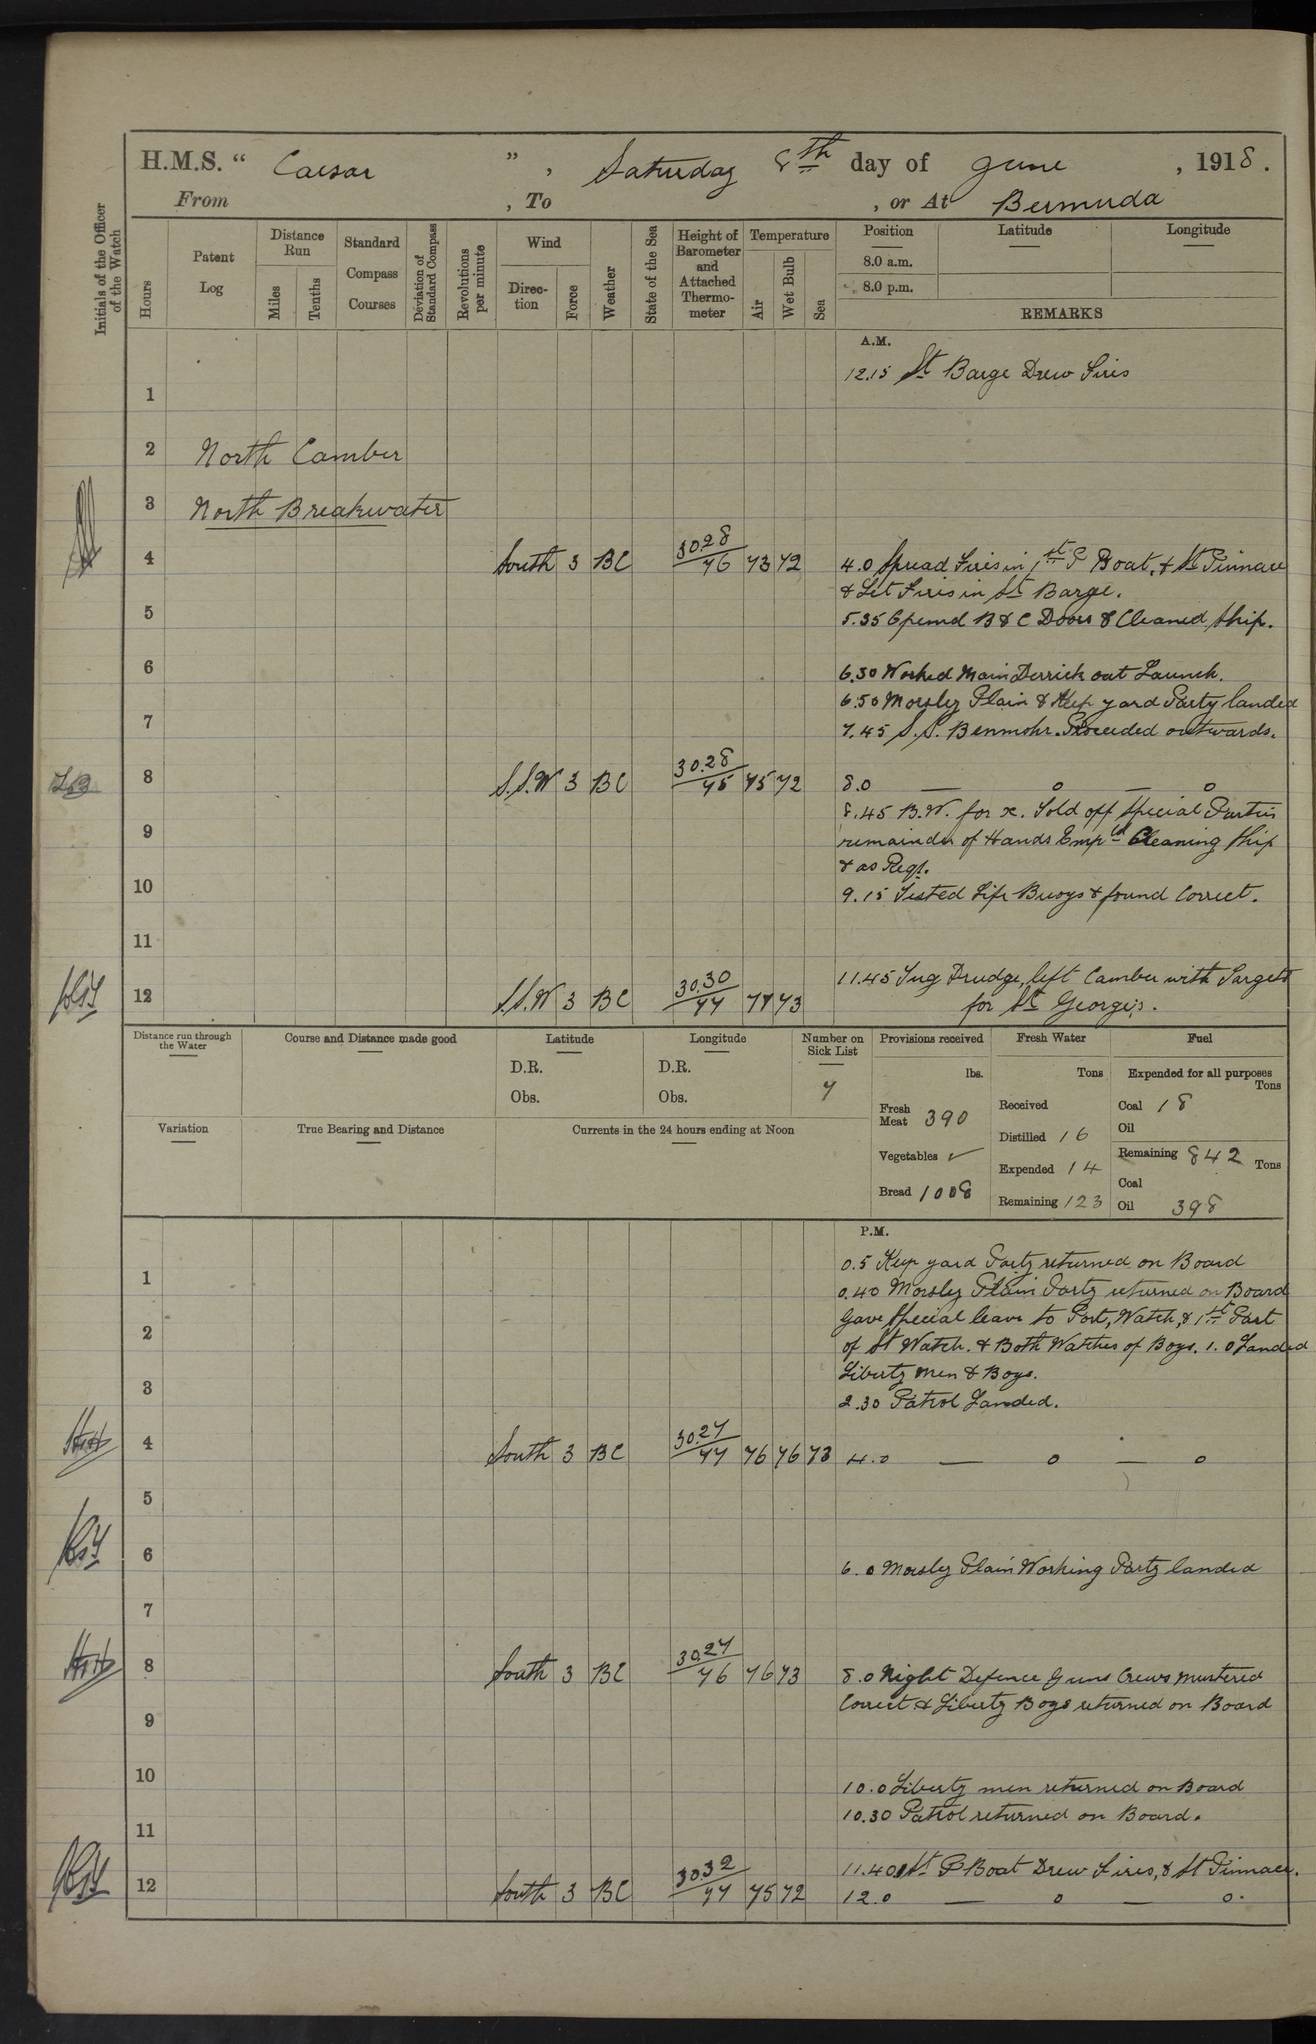 H.M.S. “ Caesar ”, Saturday 8th day of June, 1918.
From , To , or At Bermuda
Initials of the Officer of the Watch
Hours
Patent Log
Distance Run
Miles
Tenths
Standard Compass Courses
Deviation of Standard Compass
Revolutions per minute
Wind
Direction
Force
Weather
State of the Sea
Height of Barometer and Attached Thermometer
Temperature
Air
Wet Bulb
Sea
Position
Latitude
Longitude
8.0 a.m.
8.0 p.m.
REMARKS
A.M.
12.15 St Barge Drew Fires
1
2 North Camber
3 North Breakwater
4 South 3 BC 30.28 76 73 72 4.0 Spread Fires in 1st P Boat, & St Pinnace
& Let Fires in St Barge.
5 5.35 Opened B & C Doors & Cleaned Ship.
6 6.30 Worked Main Derrick out Launch.
6.50 Morsley Plain & Keep yard Party landed
7 7.45 S.S. Benmohr. Proceeded outwards.
8 S.S.W 3 BC 30.28 75 75 72 8.0 — o — o
8.45 B.W. for x. Told off Special Parties
9 remainder of Hands Emp'ld Cleaning Ship
& as Reqt.
10 9.15 Tested Life Buoys & found Correct.
11
11.45 Tug Drudge, left Camber with Targets
12 S.S.W 3 BC 30.30 77 77 73 for St Georges.
Distance run through the Water
Course and Distance made good
Latitude
D.R.
Obs.
Longitude
D.R.
Obs.
Number on Sick List
7
Provisions received
lbs.
Fresh Meat 390
Vegetables ✓
Bread 1008
Fresh Water
Tons
Received
Distilled 16
Expended 14
Remaining 123
Fuel
Expended for all purposes
Tons
Coal 18
Oil
Remaining 842 Tons
Coal
Oil 398
Variation
True Bearing and Distance
Currents in the 24 hours ending at Noon
P.M.
0.5 Keep yard Party returned on Board
1 0.40 Morsley Plain Party returned on Board
Gave Special leave to Port, Watch, & 1st Part
2 of St Watch. & Both Watches of Boys. 1.0 Landed
3 Liberty Men & Boys.
2.30 Patrol Landed.
4 South 3 BC 30.27 77 76 76 73 4.0 — o — o
5
6 6.0 Morsley Plain Working Party landed
7
8 South 3 BC 30.27 76 76 73 8.0 Night Defence Guns Crews Mustered
9 Correct & Liberty Boys returned on Board
10 10.0 Liberty men returned on Board
10.30 Patrol returned on Board.
11
11.40 St P Boat Drew Fires, & St Pinnace.
12 South 3 BC 30.32 77 75 72 12.0 — o — o.